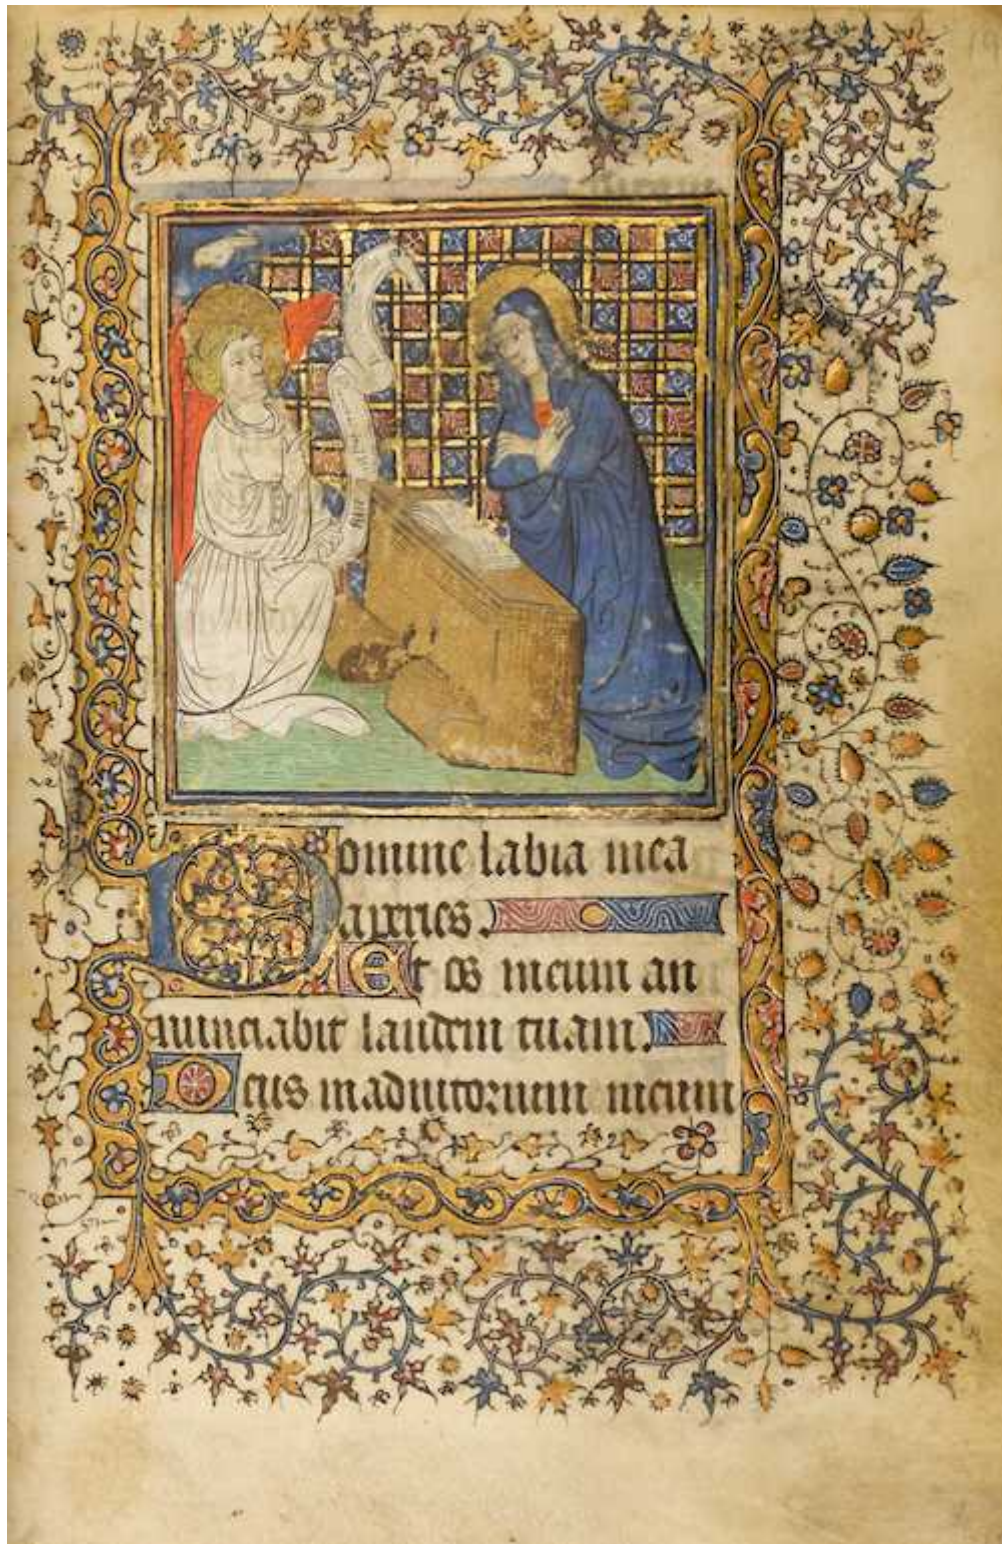 Domine labia mea
aperies.
Et os meum an
nunciabit laudem tuam.
Deus in adiutorium meum